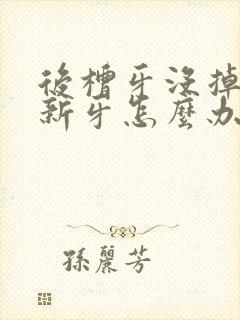 後槽牙沒掉
新牙怎麼办
孫麗芳